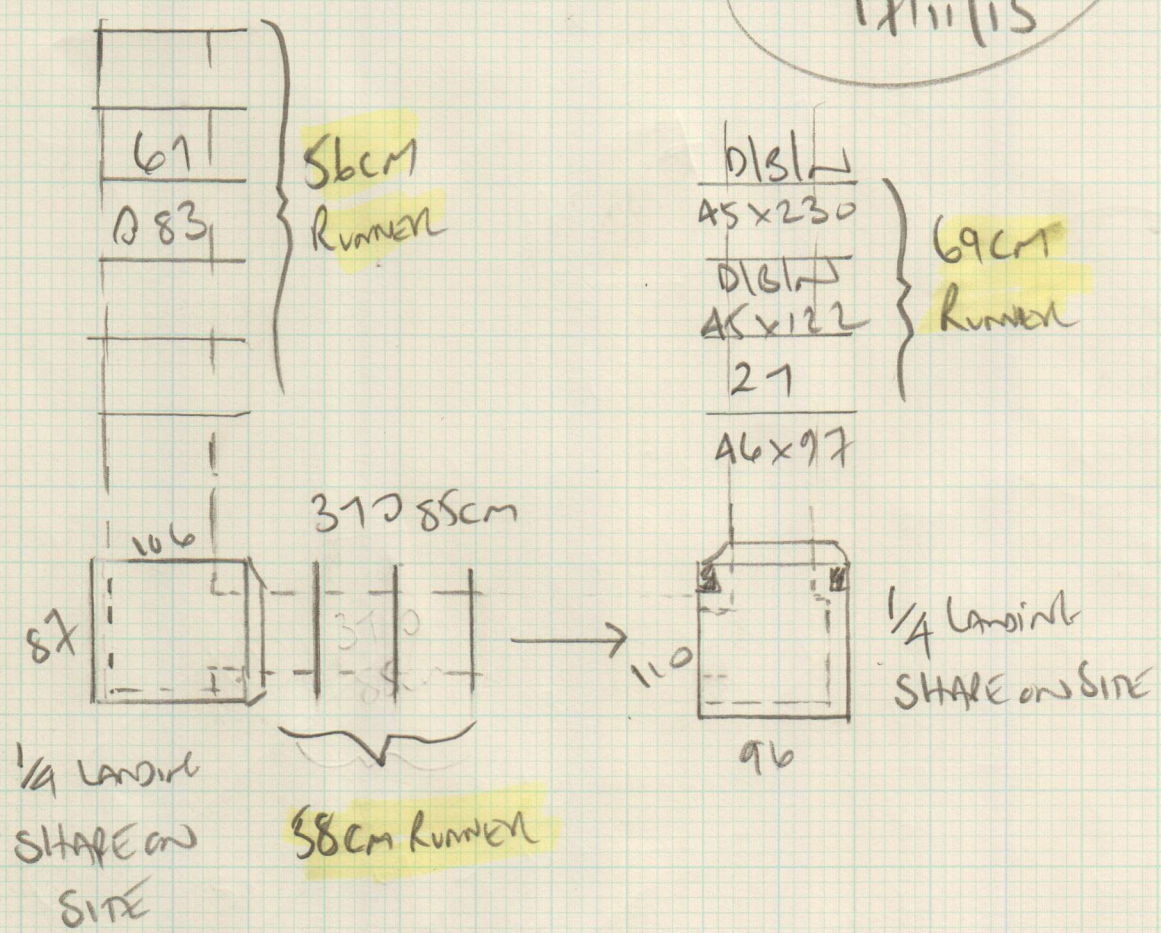 17/11/15
61
56CM
RUNNER
D 83
D/B/N
45 X 230
D/B/N
45 X 122
21
46 X 97
69CM
RUNNER
106
87
110
96
1/4 LANDING
SHAPE ON SITE
1/4 LANDING
SHAPE ON
SITE
58CM RUNNER